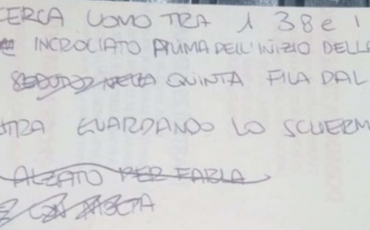 CERCA UOMO TRA I 38 e I
INCROCIATO PRIMA DELL'INIZIO DELLA
SEDUTO NELLA QUINTA FILA DAL
STRA GUARDANDO LO SCHERM
ALZATO PER FARLA